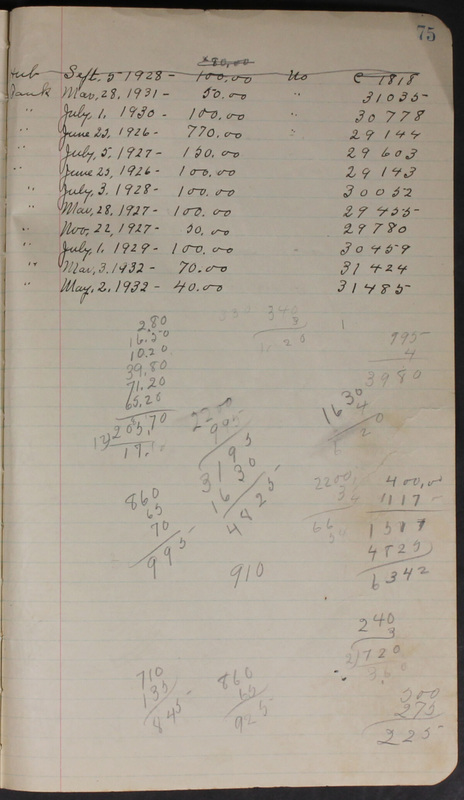 75
Hub Sept. 5 1928 - 100.00 No C 1818
Bank Mar, 28, 1931 - 50.00 " 31035
" July, 1, 1930 - 100.00 " 30778
" June 23, 1926 - 770.00 " 29144
" July, 5, 1927 - 150.00 29603
" June 23, 1926 - 100.00 29143
" July, 3, 1928 - 100.00 30052
Mar, 28, 1927 - 100.00 29455
" Nov, 22, 1927 - 50.00 29780
" July, 1, 1929 - 100.00 30459
" Mar, 3, 1932 - 70.00 31424
" May, 2, 1932 - 40.00 31485
2.80
16.50
10.20
39.80
71.20
65.20
12)205.70
17.1
340
3
995
4
3980
995
3195
1630
4825
1630
4
2200
400.00
1117
1517
4825
6342
860
65
70
995
910
240
3
2)720
360
710
135
845
860
65
925
500
275
225